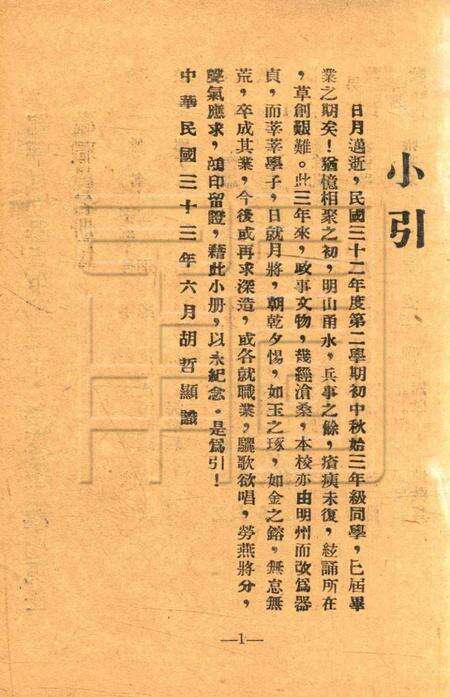 小引
日月邁逝，民國三十二年度第二學期初中秋始三年級同學，已屆畢
業之期矣！猶憶相聚之初，明山甬水，兵事之餘，瘡痍未復，絃誦所在
，草創艱難。此三年來，政事文物，幾經滄桑，本校亦由明州而改爲器
貞，而莘莘學子，日就月將，朝乾夕惕，如玉之琢，如金之鎔，無怠無
荒，卒成其業，今後或再求深造，或各就職業，驪歌欲唱，勞燕將分，
聲氣應求，鴻印留證，藉此小册，以永紀念。是爲引！
中華民國三十三年六月胡哲顯識
—1—